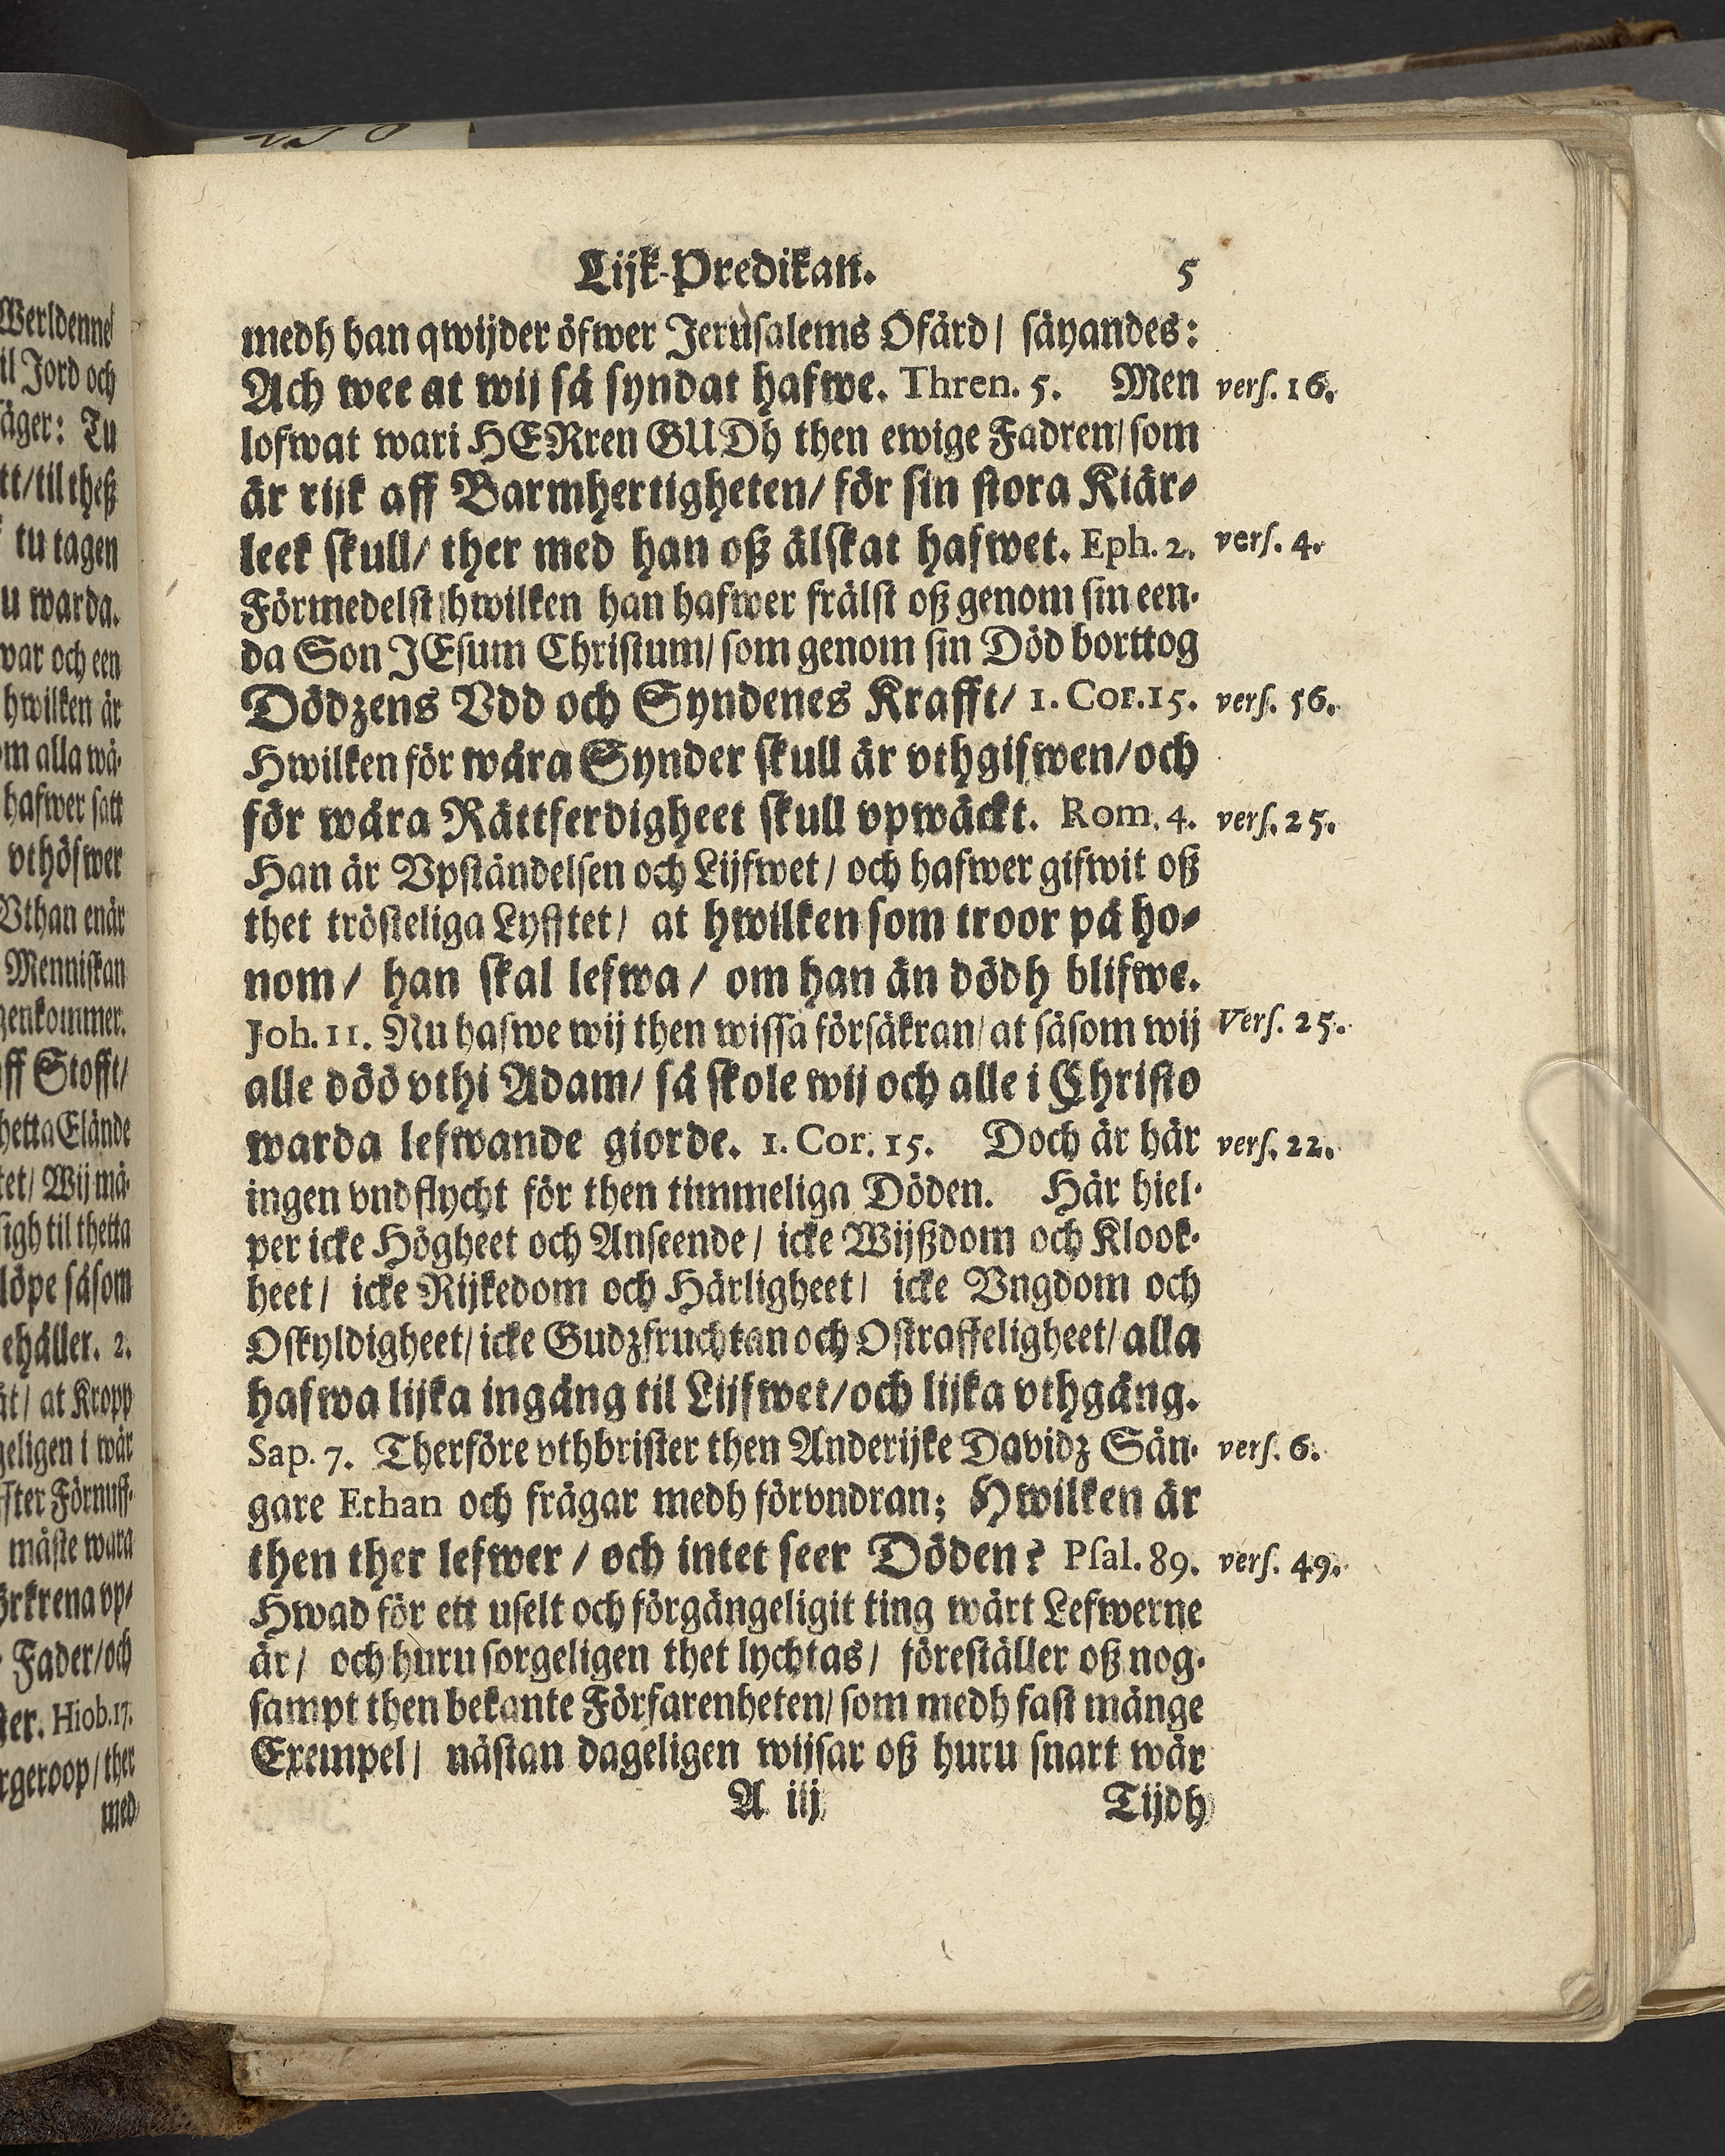 Lijk-Predikan. 5
medh han qwijder öfwer Jerusalems Ofärd/ säyandes:
Ach wee at wij så syndat hafwe. Thren. 5. Men vers. 16.
lofwat wari HERren GUDh then ewige Fadren/ som
är rijk aff Barmhertigheten/ för sin stora Kiär-
leek skull/ ther med han oß älskat hafwet. Eph. 2. vers. 4.
Förmedelst hwilken han hafwer frälst oß genom sin een-
da Son JEsum Christum/ som genom sin Död borttog
Dödzens Vdd och Syndenes Krafft/ 1. Cor. 15. vers. 56.
Hwilken för wåra Synder skull är vthgifwen/ och
för wåra Rättferdigheet skull vpwäckt. Rom. 4. vers. 25.
Han är Vpståndelsen och Lijfwet/ och hafwer gifwit oß
thet trösteliga Lyfftet/ at hwilken som troor på ho-
nom/ han skal lefwa/ om han än dödh blifwe.
Joh. 11. Nu hafwe wij then wissa försäkran/ at såsom wij Vers. 25.
alle döö vthi Adam/ så skole wij och alle i Christo
warda lefwande giorde. 1. Cor. 15. Doch är här vers. 22.
ingen vndflycht för then timmeliga Döden. Här hiel-
per icke Högheet och Anseende/ icke Wijßdom och Klook-
heet/ icke Rijkedom och Härligheet/ icke Vngdom och
Oskyldigheet/ icke Gudzfruchtan och Ostraffeligheet/ alla
hafwa lijka ingång til Lijfwet/ och lijka vthgång.
Sap. 7. Therföre vthbrister then Anderijke Davidz Sån- vers. 6.
gare Ethan och frågar medh förvndran; Hwilken är
then ther lefwer/ och intet seer Döden? Psal. 89. vers. 49.
Hwad för ett uselt och förgängeligit ting wårt Lefwerne
är/ och huru sorgeligen thet lychtas/ föreställer oß nog-
sampt then bekante Förfarenheten/ som medh fast månge
Exempel/ nästan dageligen wijsar oß huru snart wår
A iij Tijdh